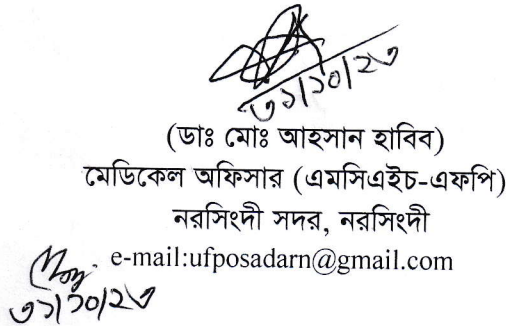 ৩১/১০/২৩
(ডাঃ মোঃ আহসান হাবিব)
মেডিকেল অফিসার (এমসিএইচ-এফপি)
নরসিংদী সদর, নরসিংদী
e-mail:ufposadarn@gmail.com
৩১/১০/২৩